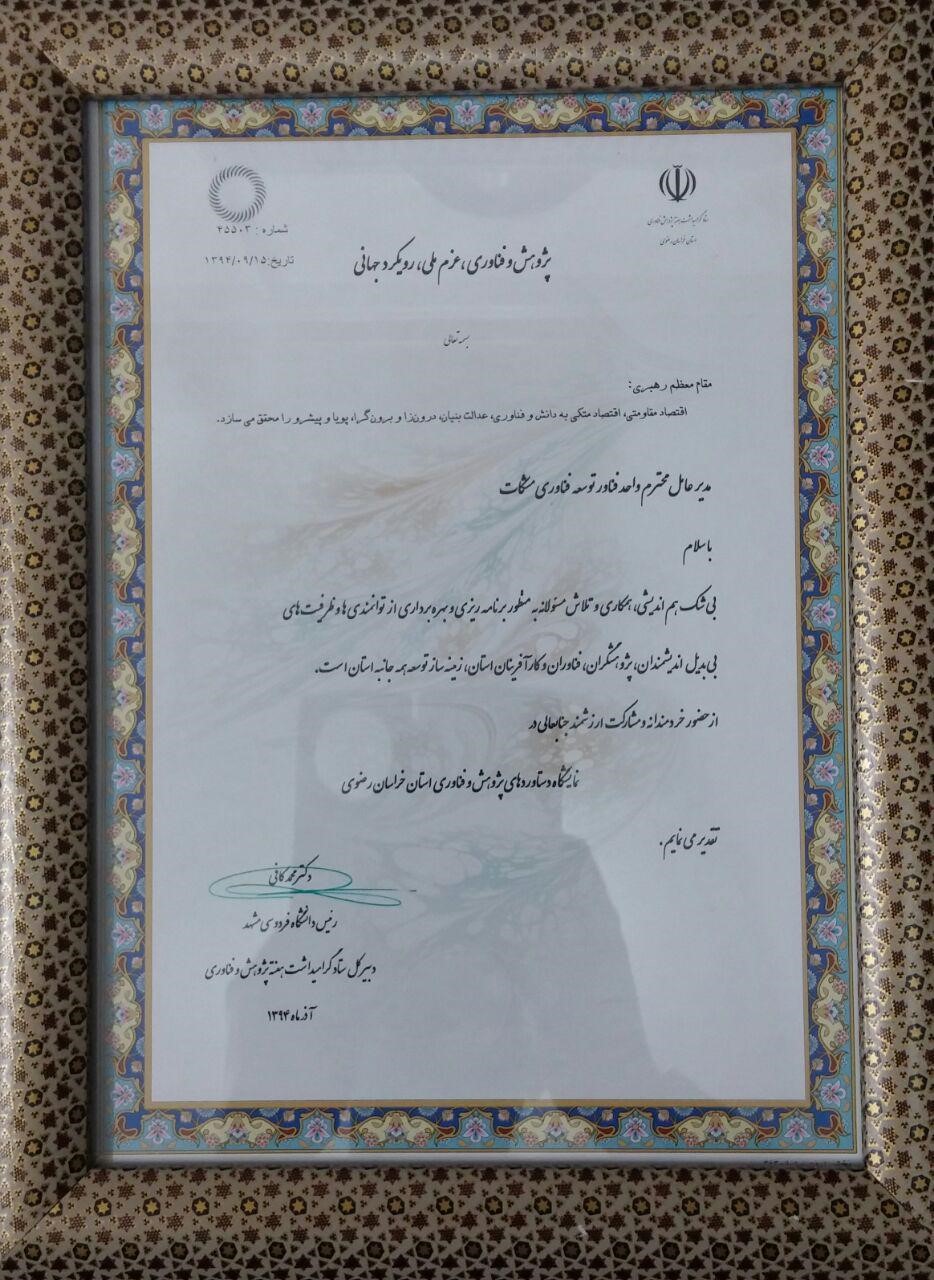 ستاد گرامیداشت هفته پژوهش و فناوری
استان خراسان رضوی
شماره : ۴۵۵۰۳
تاریخ: ۱۳۹۴/۰۹/۱۵
پژوهش و فناوری، عزم ملی، رویکرد جهانی
بسمه تعالی
مقام معظم رهبری:
اقتصاد مقاومتی، اقتصاد متکی به دانش و فناوری، عدالت بنیان، درون‌زا و برون‌گرا، پویا و پیشرو را محقق می سازد.
مدیر عامل محترم واحد فناور توسعه فناوری مشکات
با سلام
بی شک هم اندیشی، همکاری و تلاش مسئولانه به منظور برنامه ریزی و بهره برداری از توانمندی ها و ظرفیت های
بی بدیل اندیشمندان، پژوهشگران، فناوران و کارآفرینان استان، زمینه ساز توسعه همه جانبه استان است.
از حضور خردمندانه و مشارکت ارزشمند جنابعالی در
نمایشگاه دستاوردهای پژوهش و فناوری استان خراسان رضوی
تقدیر می نمایم.
دکتر محمد کافی
رئیس دانشگاه فردوسی مشهد
دبیر کل ستاد گرامیداشت هفته پژوهش و فناوری
آذر ماه ۱۳۹۴